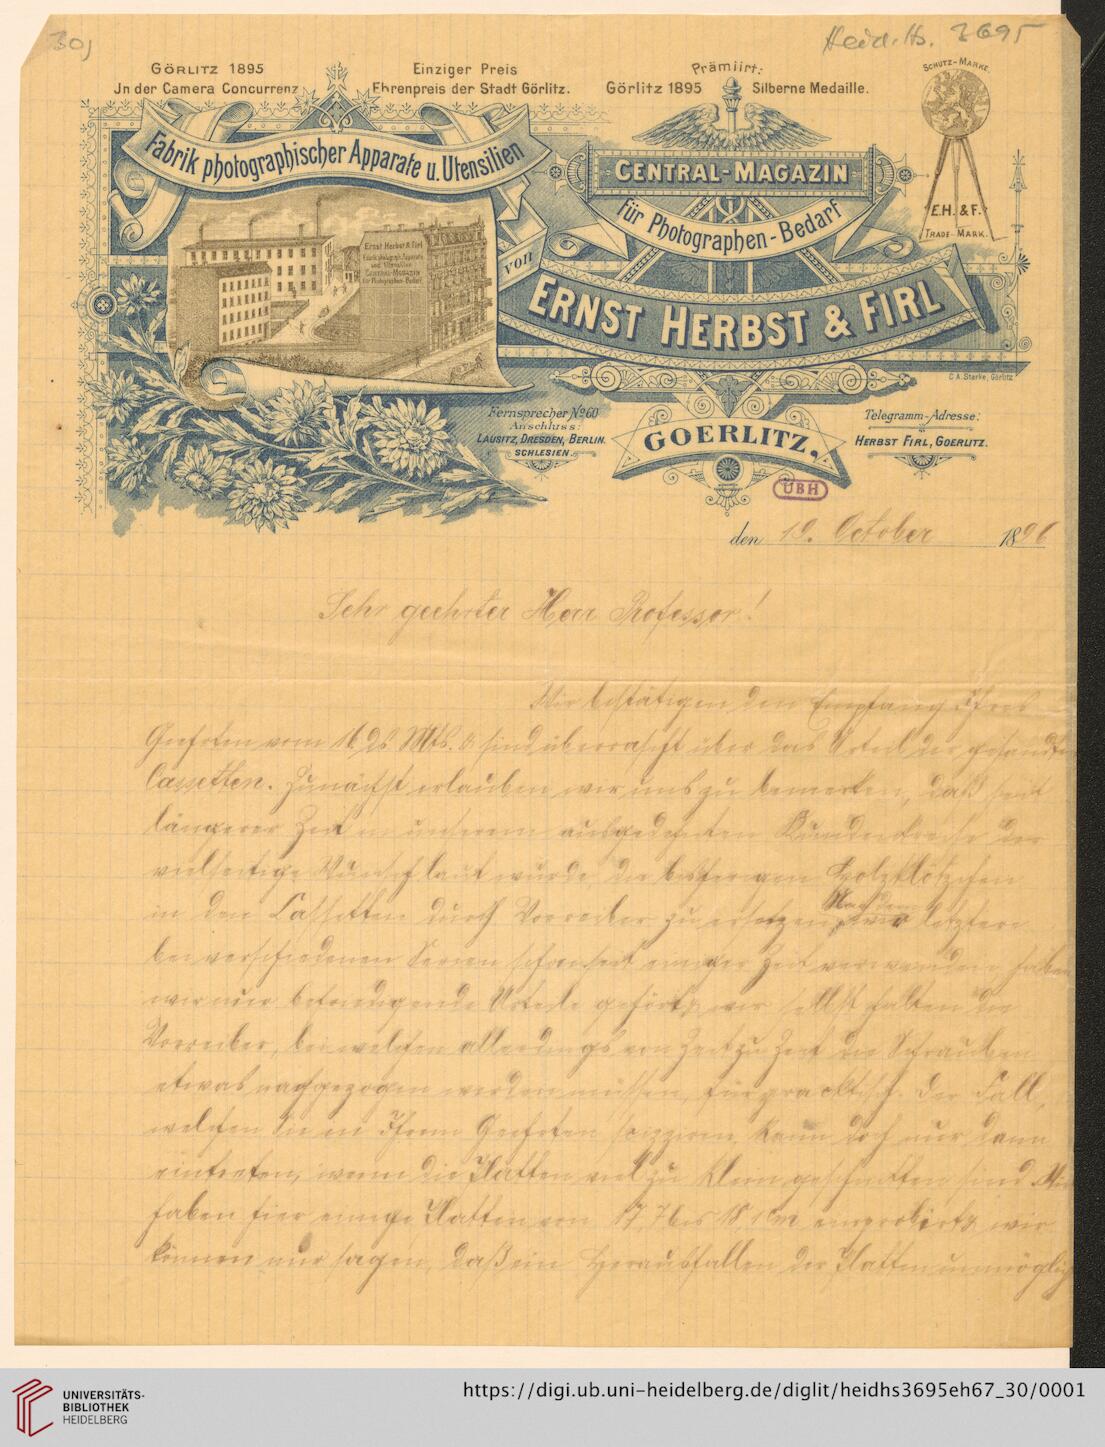 30)
Heid. Hs. 3695
GÖRLITZ 1895
Jn der Camera Concurrenz
Einziger Preis
Ehrenpreis der Stadt Görlitz.
Prämiirt:
Görlitz 1895 Silberne Medaille.
SCHUTZ-MARKE.
E.H. & F.
TRADE MARK.
Fabrik photographischer Apparate u. Utensilien
CENTRAL-MAGAZIN
für Photographen-Bedarf
von
ERNST HERBST & FIRL
Ernst Herbst & Firl
Fabrik photograph. Apparate
und Utensilien
CENTRAL-MAGAZIN
für Photographen-Bedarf
C.A. Starke, Görlitz
Fernsprecher No 60
Anschluss:
LAUSITZ, DRESDEN, BERLIN.
SCHLESIEN.
GOERLITZ,
Telegramm-Adresse:
HERBST FIRL, GOERLITZ.
UBH
den 19. October 1896
Sehr geehrter Herr Professor!
Wir bestätigen den Empfang Ihres
Geehrten vom 16. ds. Mts. & sind überrascht über das Urteil der gesandten
Cassetten. Zunächst erlauben wir uns zu bemerken, daß seit
längerer Zeit in unserem ausgedehnten Kundenkreise der
vielseitige Wunsch laut wurde, die bisherigen Holzklötzchen
in den Cassetten durch Vorreiber zu ersetzen. Nachdem wir letztere
bei verschiedenen Serien schon seit einiger Zeit verwenden, haben
wir nur befriedigende Urteile gehört & wir selbst halten die
Vorreiber, bei welchen allerdings von Zeit zu Zeit die Schrauben
etwas nachgezogen werden müssen, für practisch. Der Fall,
welchen Sie in Ihrem Geehrten skizziren, kann doch nur dann
eintreten, wenn die Platten viel zu klein geschnitten sind. Wir
haben hier einige Platten von 17,7 bis 18,1 cm einprobirt & wir
können nur sagen, daß ein Herausfallen der Platten unmöglich
UNIVERSITÄTS-
BIBLIOTHEK
HEIDELBERG
https://digi.ub.uni-heidelberg.de/diglit/heidhs3695eh67_30/0001